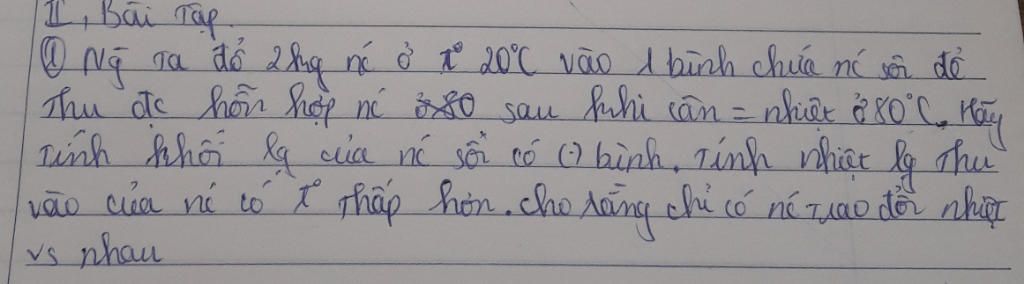 II, Bài Tập.
① Ng̃ Ta đổ 2kg nć ở t° 20°C vào 1 bình chứa nć sôi để
Thu đc hỗn hợp nć ở 80 sau khi cân = nhiệt ở 80°C. Hãy
Tính khối lg của nć sôi có (-) bình. Tính nhiệt lg Thu
vào của nć có t° Thấp hơn. Cho rằng chỉ có nć Trao đổi nhiệt
vs nhau